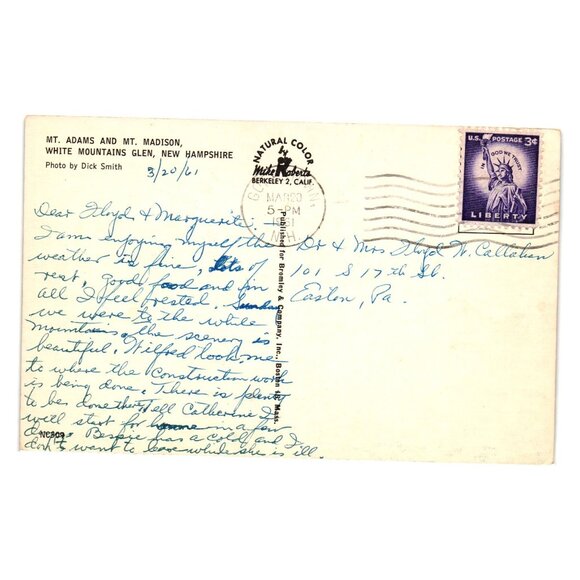 MT. ADAMS AND MT. MADISON,
WHITE MOUNTAINS GLEN, NEW HAMPSHIRE
Photo by Dick Smith
3/20/61
NATURAL COLOR
Mike Roberts
BERKELEY 2, CALIF.
MAR 20
5-PM
N.H.
U.S. POSTAGE 3¢
IN GOD WE TRUST
LIBERTY
Published for Bromley & Company, Inc., Boston 10, Mass.
Dear Floyd & Marguerite:
I am enjoying myself the
weather is fine, lots of
rest, good food and fun
all I feel rested. Sunday
we were to the white
mountains the scenery is
beautiful. Wilfred took me
to where the Construction work
is being done. There is plenty
to be done there. Tell Catherine I
will start for home in a few
days. Bessie has a cold and I
don't want to leave while she is ill.
NC309
Dr & Mrs Floyd W. Callahan
101 S 17th St.
Easton, Pa.